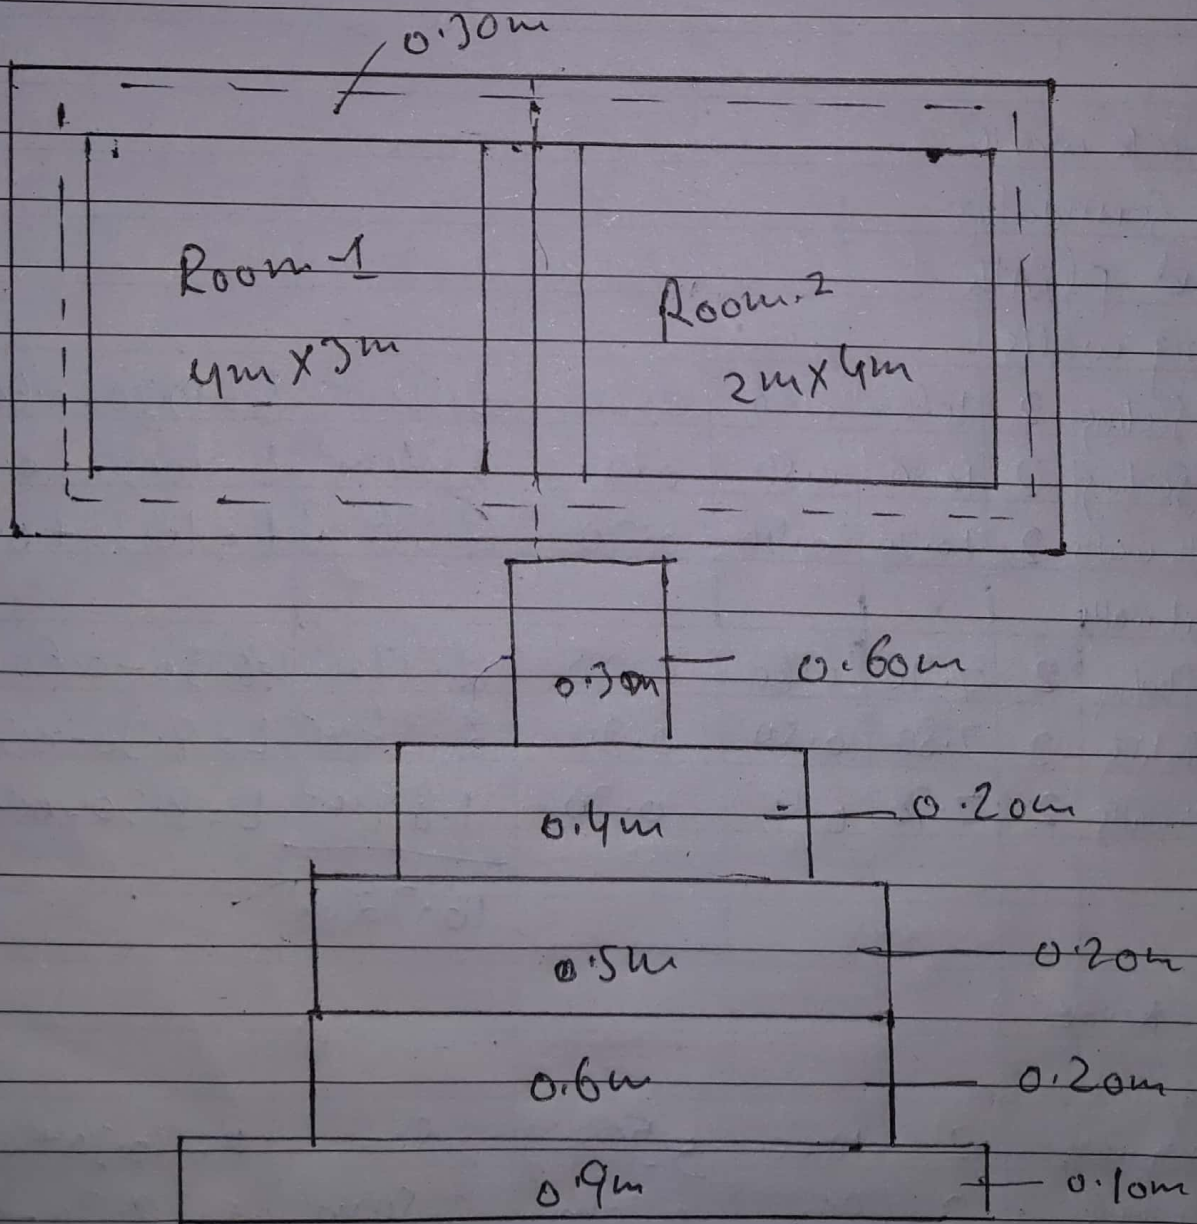 0.30m
Room 1
4m x 3m
Room.2
2m x 4m
0.30m
0.60m
0.4m
0.20m
0.5m
0.20m
0.6m
0.20m
0.9m
0.10m